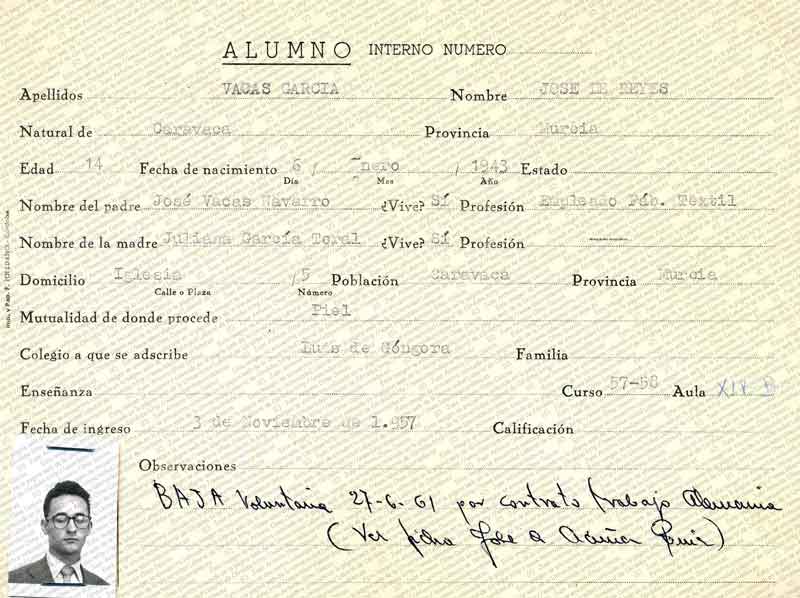 ALUMNO INTERNO NUMERO
Apellidos VACAS GARCIA Nombre JOSE DE REYES
Natural de Caravaca Provincia Murcia
Edad 14 Fecha de nacimiento 6 / Enero / 1943 Estado
Día Mes Año
Nombre del padre José Vacas Navarro ¿Vive? Sí Profesión Empleado Fáb. Textil
Nombre de la madre Juliana García Toral ¿Vive? Sí Profesión
Domicilio Iglesia /5 Población Caravaca Provincia Murcia
Calle o Plaza Número
Mutualidad de donde procede Piel
Colegio a que se adscribe Luis de Góngora Familia
Enseñanza Curso 57-58 Aula XIV B
Fecha de ingreso 3 de Noviembre de 1.957 Calificación
Observaciones
BAJA Voluntaria 27-6-61 por contrato trabajo Alemania
(Ver ficha Jose A Acuña Ruiz)